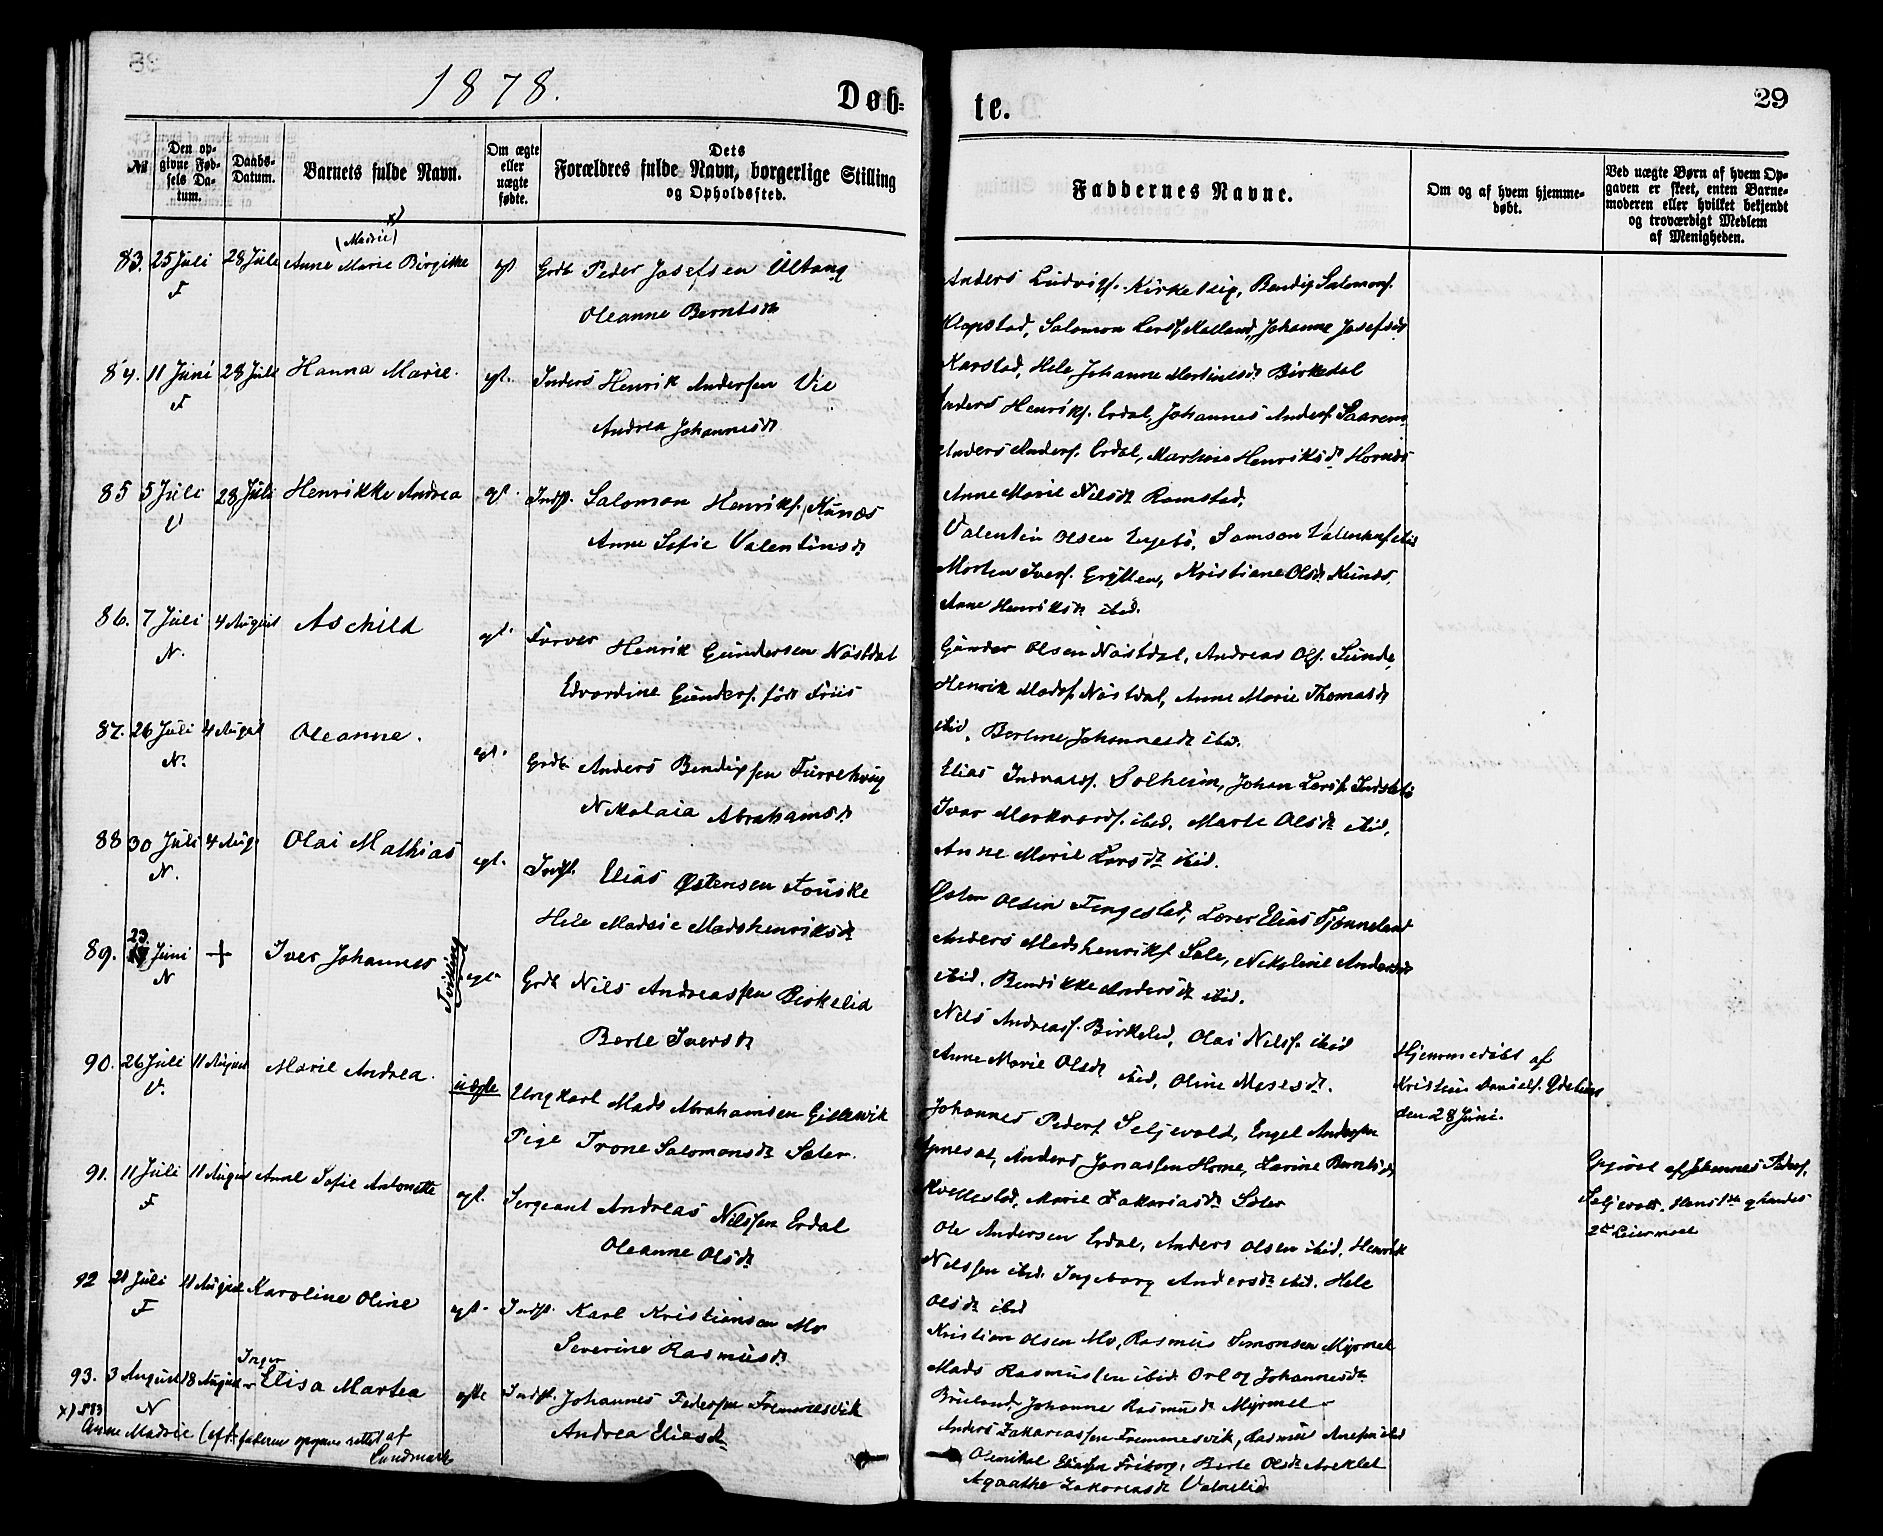 1878.
Døb-
te.
29
№
Den op-
givne Fød-
sels Da-
tum.
Daabs-
Datum.
Barnets fulde Navn.
Om ægte
eller
uægte
fødte.
Dets
Forældres fulde Navn, borgerlige Stilling
og Opholdssted.
Faddernes Navne.
Om og af hvem hjemme-
døbt.
Ved uægte Børn af hvem Op-
gaven er skeet, enten Barne-
moderen eller hvilket bekjendt
og troværdigt Medlem
af Menigheden.
x)
(Madsie)
83. 25 Juli 28 Juli Anne Marie Birgitte egt Grdb Peder Josefsen Ultang
F
Oleanne Berntsdr
Anders Ludvigs. Kirkeleig, Bendix Salomons.
Klopstad, Salomon Larss. Kalland, Johanne Josefsdr
Karstad, Hele Johanne Martinesdr Birkedal
84. 11 Juni 28 Juli Hanna Marie. egt. Inders Henrik Andersen Vie
F
Andrea Johannesdr
Anders Henriks. Erdal, Johannes Anders.
Anders Anders. Erdal, Henriksdr Hornes
Anne Marie Nilsdr Ramstad.
85 5 Juli 28 Juli Henrikke Andrea egt. Indst. Salomon Henriks. Kunes
V
Anne Sofie Valentinsdr
Valentin Olsen Engebø, Samson
Morten Ivers. Grytten, Kristiane Olsdr Kunes.
Anne Henriksdr ibid.
86. 7 Juli 4 August Aschild egt. Farver Henrik Gundersen Nåstdal
N.
Edvardine Gunders. født Friis
Gunder Olsen Nåstdal, Andreas Ols. Sunde,
Henrik Mads. Nåstdal, Anne Marie Thomasdr
ibid, Berline Johannesdr ibid.
87. 26 Juli 4 August Oleanne. egt. Grdb. Anders Bendixsen Furrehvig
N.
Nikolaia Abrahamsdr
Elias Solheim, Johan Larss.
Ivar Markvards. ibid. Marte Olsdr ibid,
Anne Marie Larsdr ibid.
88 30 Juli 4 Aug. Olai Mathias egt. Indst. Elias Østensen Fouske
N.
Hele Madsie Madshenriksdr
Østen Olsen Tengestad, Lærer Elias Tjønneland
Anders Madshenriks. Sole, Nikoline Andersdr
ibid. Bendikke Andersdr ibid.
89. 23 Juni + Iver Johannes Tvilling egt. Grdb Nils Andreassen Birkelid
N
Berte Iversdr
Nils Andreass. Birkelid, Olai Nilss. ibid
Anne Marie Olsdr ibid, Oline Mosesdr.
Hjemmedøbt af
Kristian Daniels.
den 28 Juni.
90. 26 Juli 11 August Marie Andrea. uægte Ungkarl Mads Abrahamsen Gillevik
V.
Pige Trone Salomonsdr Sæter.
Johannes Peders. Seljevold, Engel Andersen
Anders Jonassen Horne, Karine Berntsdr
Kvellestad, Marie Zakariasdr Sæter
af Johannes Peders.
Seljevold.
2det Leiermaal
91. 11 Juli 11 August Anne Sofie Antonette egt. Sergeant Andreas Nilssen Erdal
F
Oleanne Olsdr
Ole Andersen Erdal, Anders Olsen ibid, Henrik
Nilssen ibid. Ingeborg Andersdr ibid. Hele
Olsdr ibid
92 21 Juli 11 August Karoline Oline egt. Indst. Karl Kristiansen Mo
F
Severine Rasmusdr
Kristian Olsen Mo, Rasmus Simonsen Myrmel
Mads Rasmussen ibid. Johannesdr
Bruland, Johanne Rasmusdr Myrmel
Inger
93. 3 August 18 August Elisa Martea egte Indst. Johannes Pedersen Fremmesvik
N
Andrea Eliasdr
Anders Zakariassen Fremmesvik, Rasmus ibid
Olsdr
Agaathe Zakariasdr
x) 83
Anne Madsie (eft. faderens opgave rettet af
Landmark